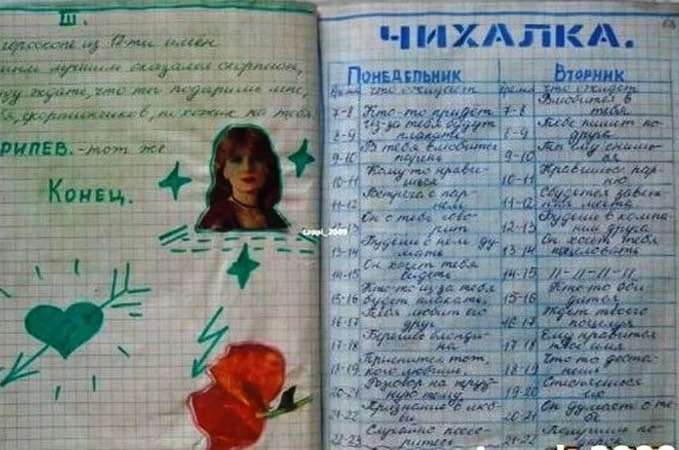 III.
гороскопе из 12-ти имён
лучшим оказался скорпион,
ждите, что ты подаришь мне,
скорпиончиков, похожих на тебя
ПРИПЕВ. - тот же
КОНЕЦ.
ЧИХАЛКА.
ПОНЕДЕЛЬНИК
время что ожидает
7-8 Кто-то придёт
8-9 Из-за тебя будут плакать
9-10 В тебя влюбится парень
10-11 Кому-то нравишься
11-12 Встреча с парнем
12-13 Он с тебе говорит
13-14 Будешь с нем думать
14-15 Он хочет тебя видеть
15-16 Кто-то из за тебя будет плакать.
16-17 Тебя любит его друг
17-18 Берегись блондина
18-19 Приснится тот, кого любишь.
20-21 Разговор на трудную тему
21-22 Признание в любви
22-23 Случайно поссоритесь
ВТОРНИК
время что ожидает
7-8 Влюбится в тебя
8-9 Тебе пишет подруга
9-10 Ты ему снишься
10-11 Нравишься парню
11-12 Сбудется заветная мечта
12-13 Будешь в компании друга
13-14 Он хочет тебя поцеловать
14-15 11-11-11-11
15-16 Кто-то обидится
16-17 Ждет твоего поцелуя
17-18 Ему нравится твое имя
18-19 Что то достанешь
19-20 Стесняешься его
20-21 Он думает о тебе
21-22 Получишь подарок